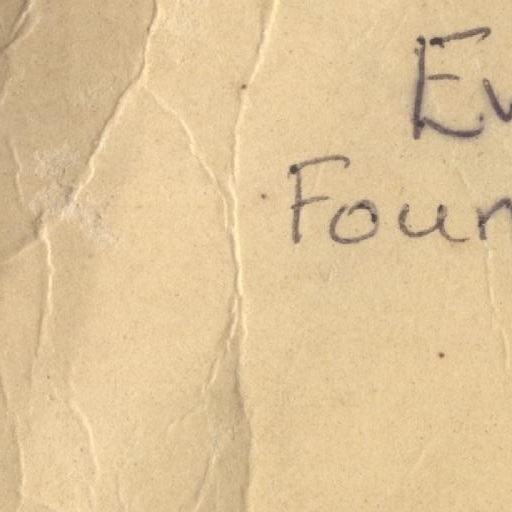 Ev
Four